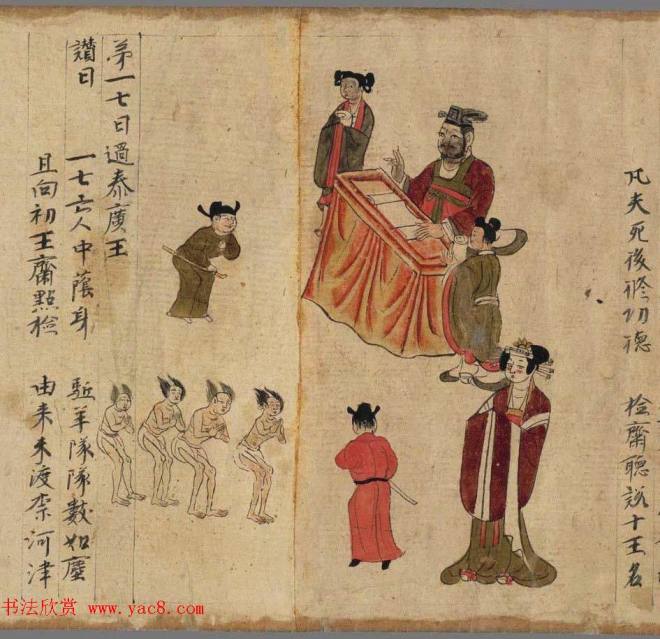 凡夫死後修功德 檢齋聽說十王名
第一七日過秦廣王
讚曰 一七亡人中蔭身 駈羊隊隊數如塵
且向初王齋點檢 由来未渡柰河津
书法欣赏 www.yac8.com